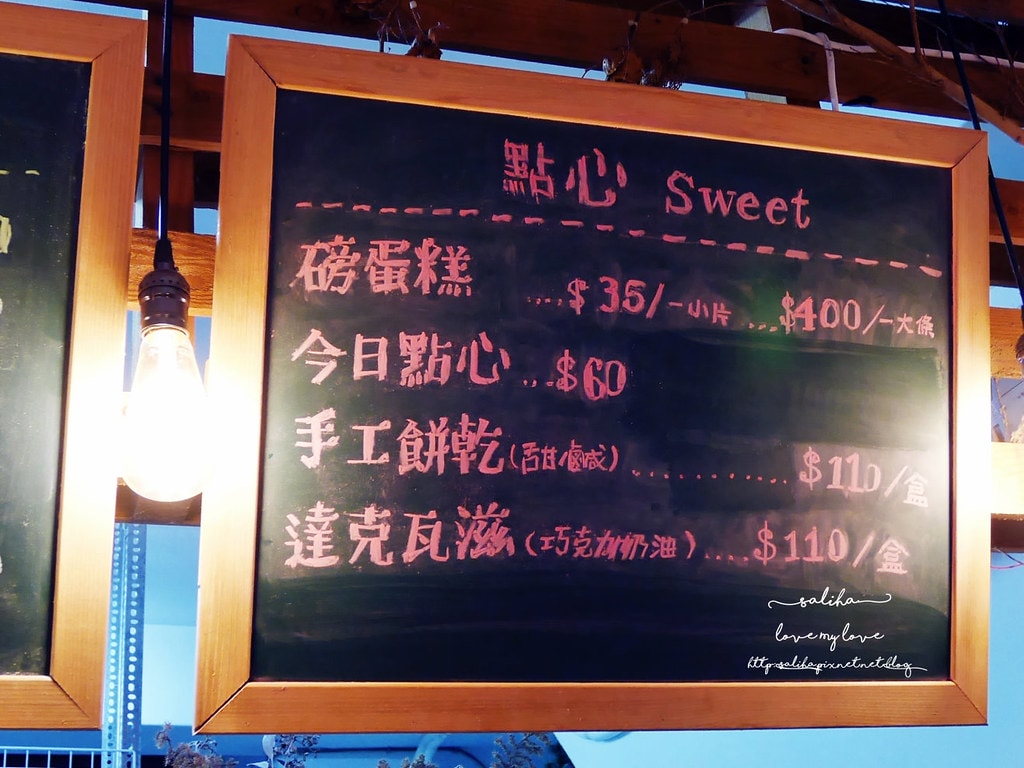 點心 Sweet
磅蛋糕 ....$35/一小片 ...$400/一大條
今日點心 ...$60
手工餅乾(甜/鹹) ............ $110/盒
達克瓦滋(巧克力/奶油) .... $110/盒
saliha
love my love
http:saliha.pixnet.net.blog